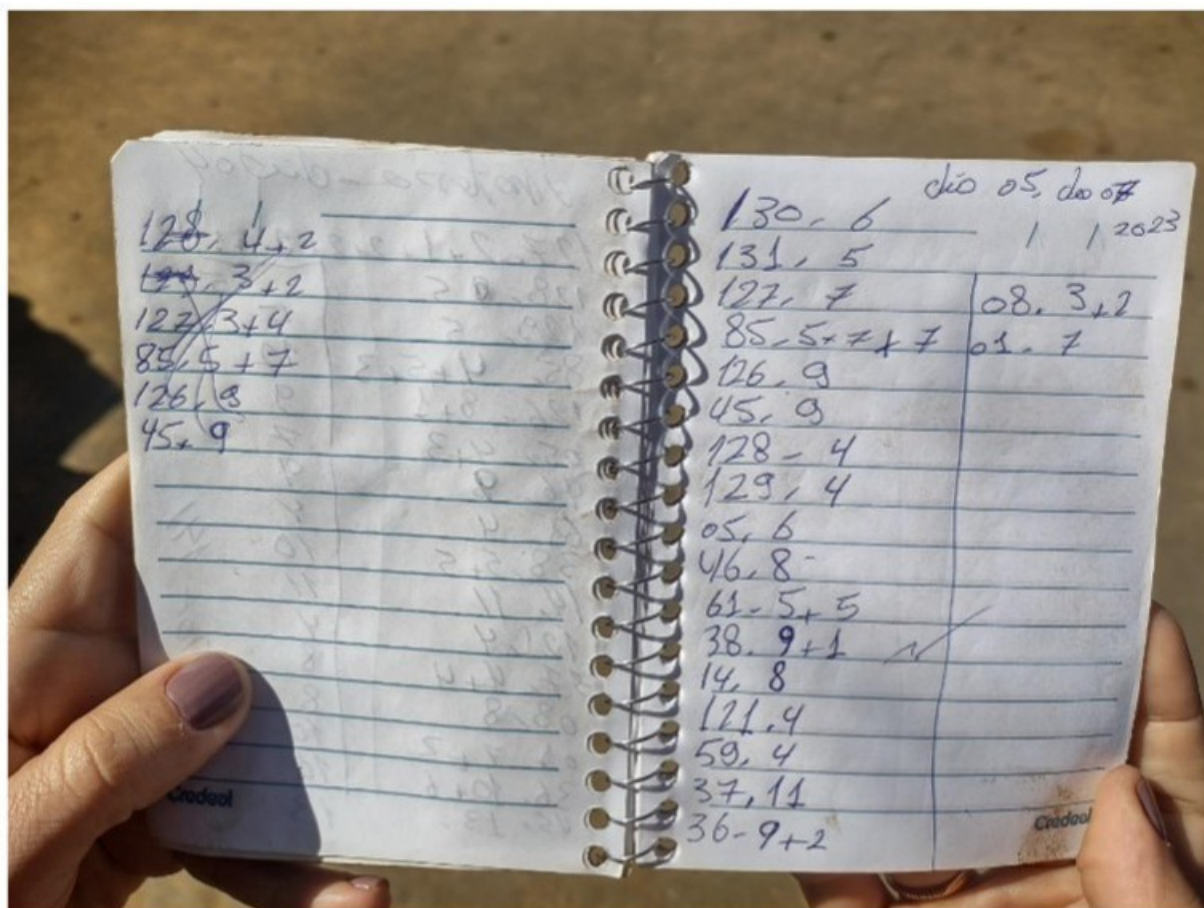 128. 4+2
129. 3+2
127. 3+4
85. 5+7
126. 9
45. 9
Credeal
dia 05, do 07
2023
130. 6
131. 5
127. 7
85. 5+7+7
126. 9
45. 9
128- 4
129. 4
05. 6
46. 8
61- 5+5
38. 9+1
14. 8
121.4
59.4
37.11
36-9+2
08. 3+2
01. 7
Credeal